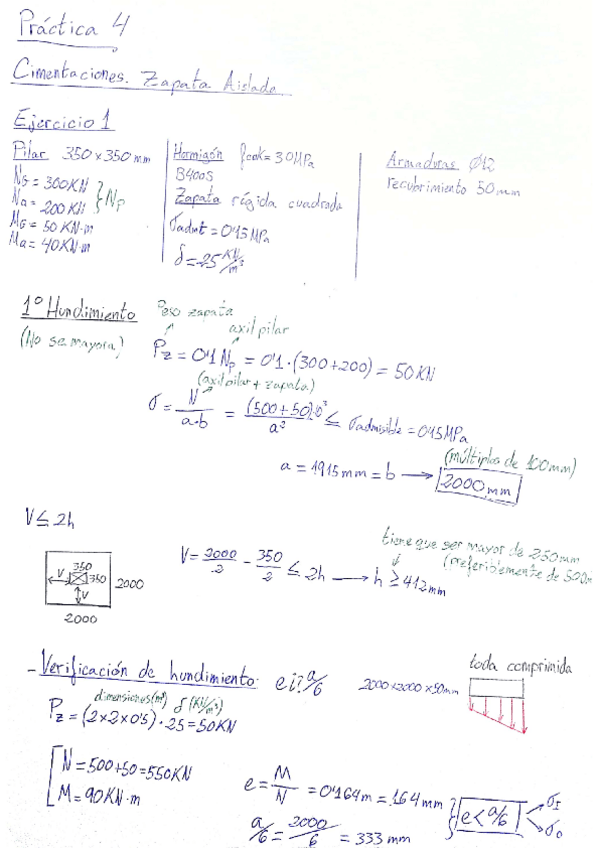 Práctica 4
Cimentaciones. Zapata Aislada
Ejercicio 1
Pilar 350x350 mm
NG = 300KN
Na = 200 KN } Np
MG = 50 KN·m
Ma = 40KN·m
Hormigón fcdk = 30MPa
B400S
Zapata rígida cuadrada
σadmt = 0'15 MPa
δ = 25 KN/m³
Armaduras Ø12
recubrimiento 50 mm
1º Hundimiento
(No se mayora)
Peso zapata
axil pilar
Pz = 0'1 Np = 0'1·(300+200) = 50 KN
(axil pilar + zapata)
σ = N/a·b = (500+50)·10³/a² ≤ σadmisible = 0'15 MPa
(múltiplos de 100mm)
a = 1915 mm = b → 2000 mm
V ≤ 2h
350
350
V
V
2000
2000
V = 2000/2 - 350/2 ≤ 2h → h ≥ 412 mm
tiene que ser mayor de 250 mm
(preferiblemente de 500m
- Verificación de hundimiento: ei? a/6
2000x2000x50mm
toda comprimida
dimensiones(m³) δ(KN/m³)
Pz = (2x2x0'5)·25 = 50 KN
N = 500+50 = 550 KN
M = 90 KN·m
e = M/N = 0'164 m = 164 mm
a/6 = 2000/6 = 333 mm
} e < a/6
σI
σo